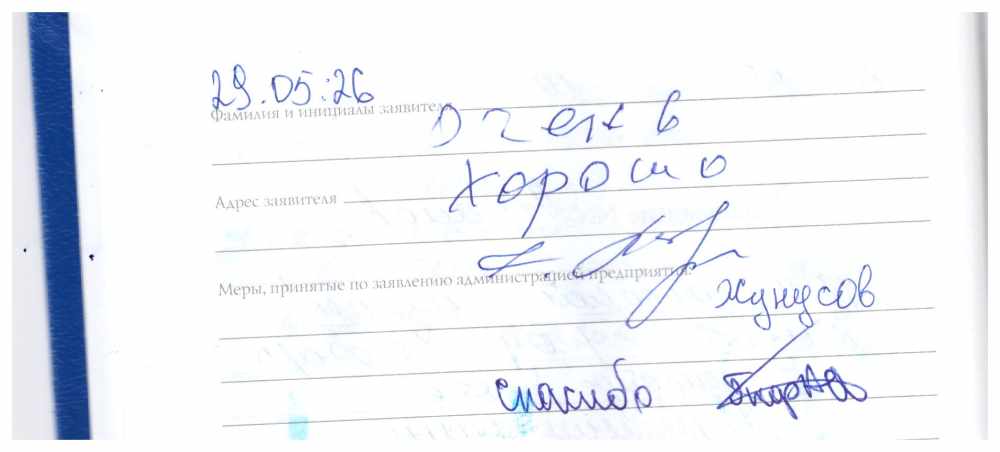 29.05.26
Фамилия и инициалы заявителя
Очень
Хорошо
Адрес заявителя
Меры, принятые по заявлению администрацией предприятия:
Жунусов
спасибо